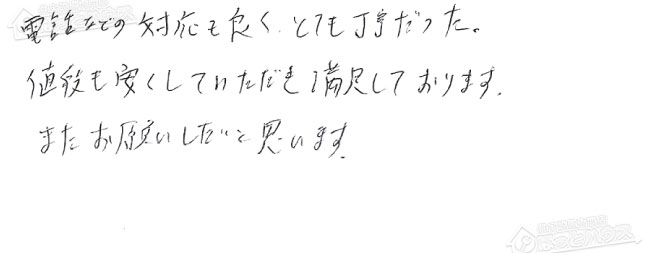 電話などの対応も良く、とても丁寧だった。
値段も安くしていただき満足しております。
またお願いしたいと思います。